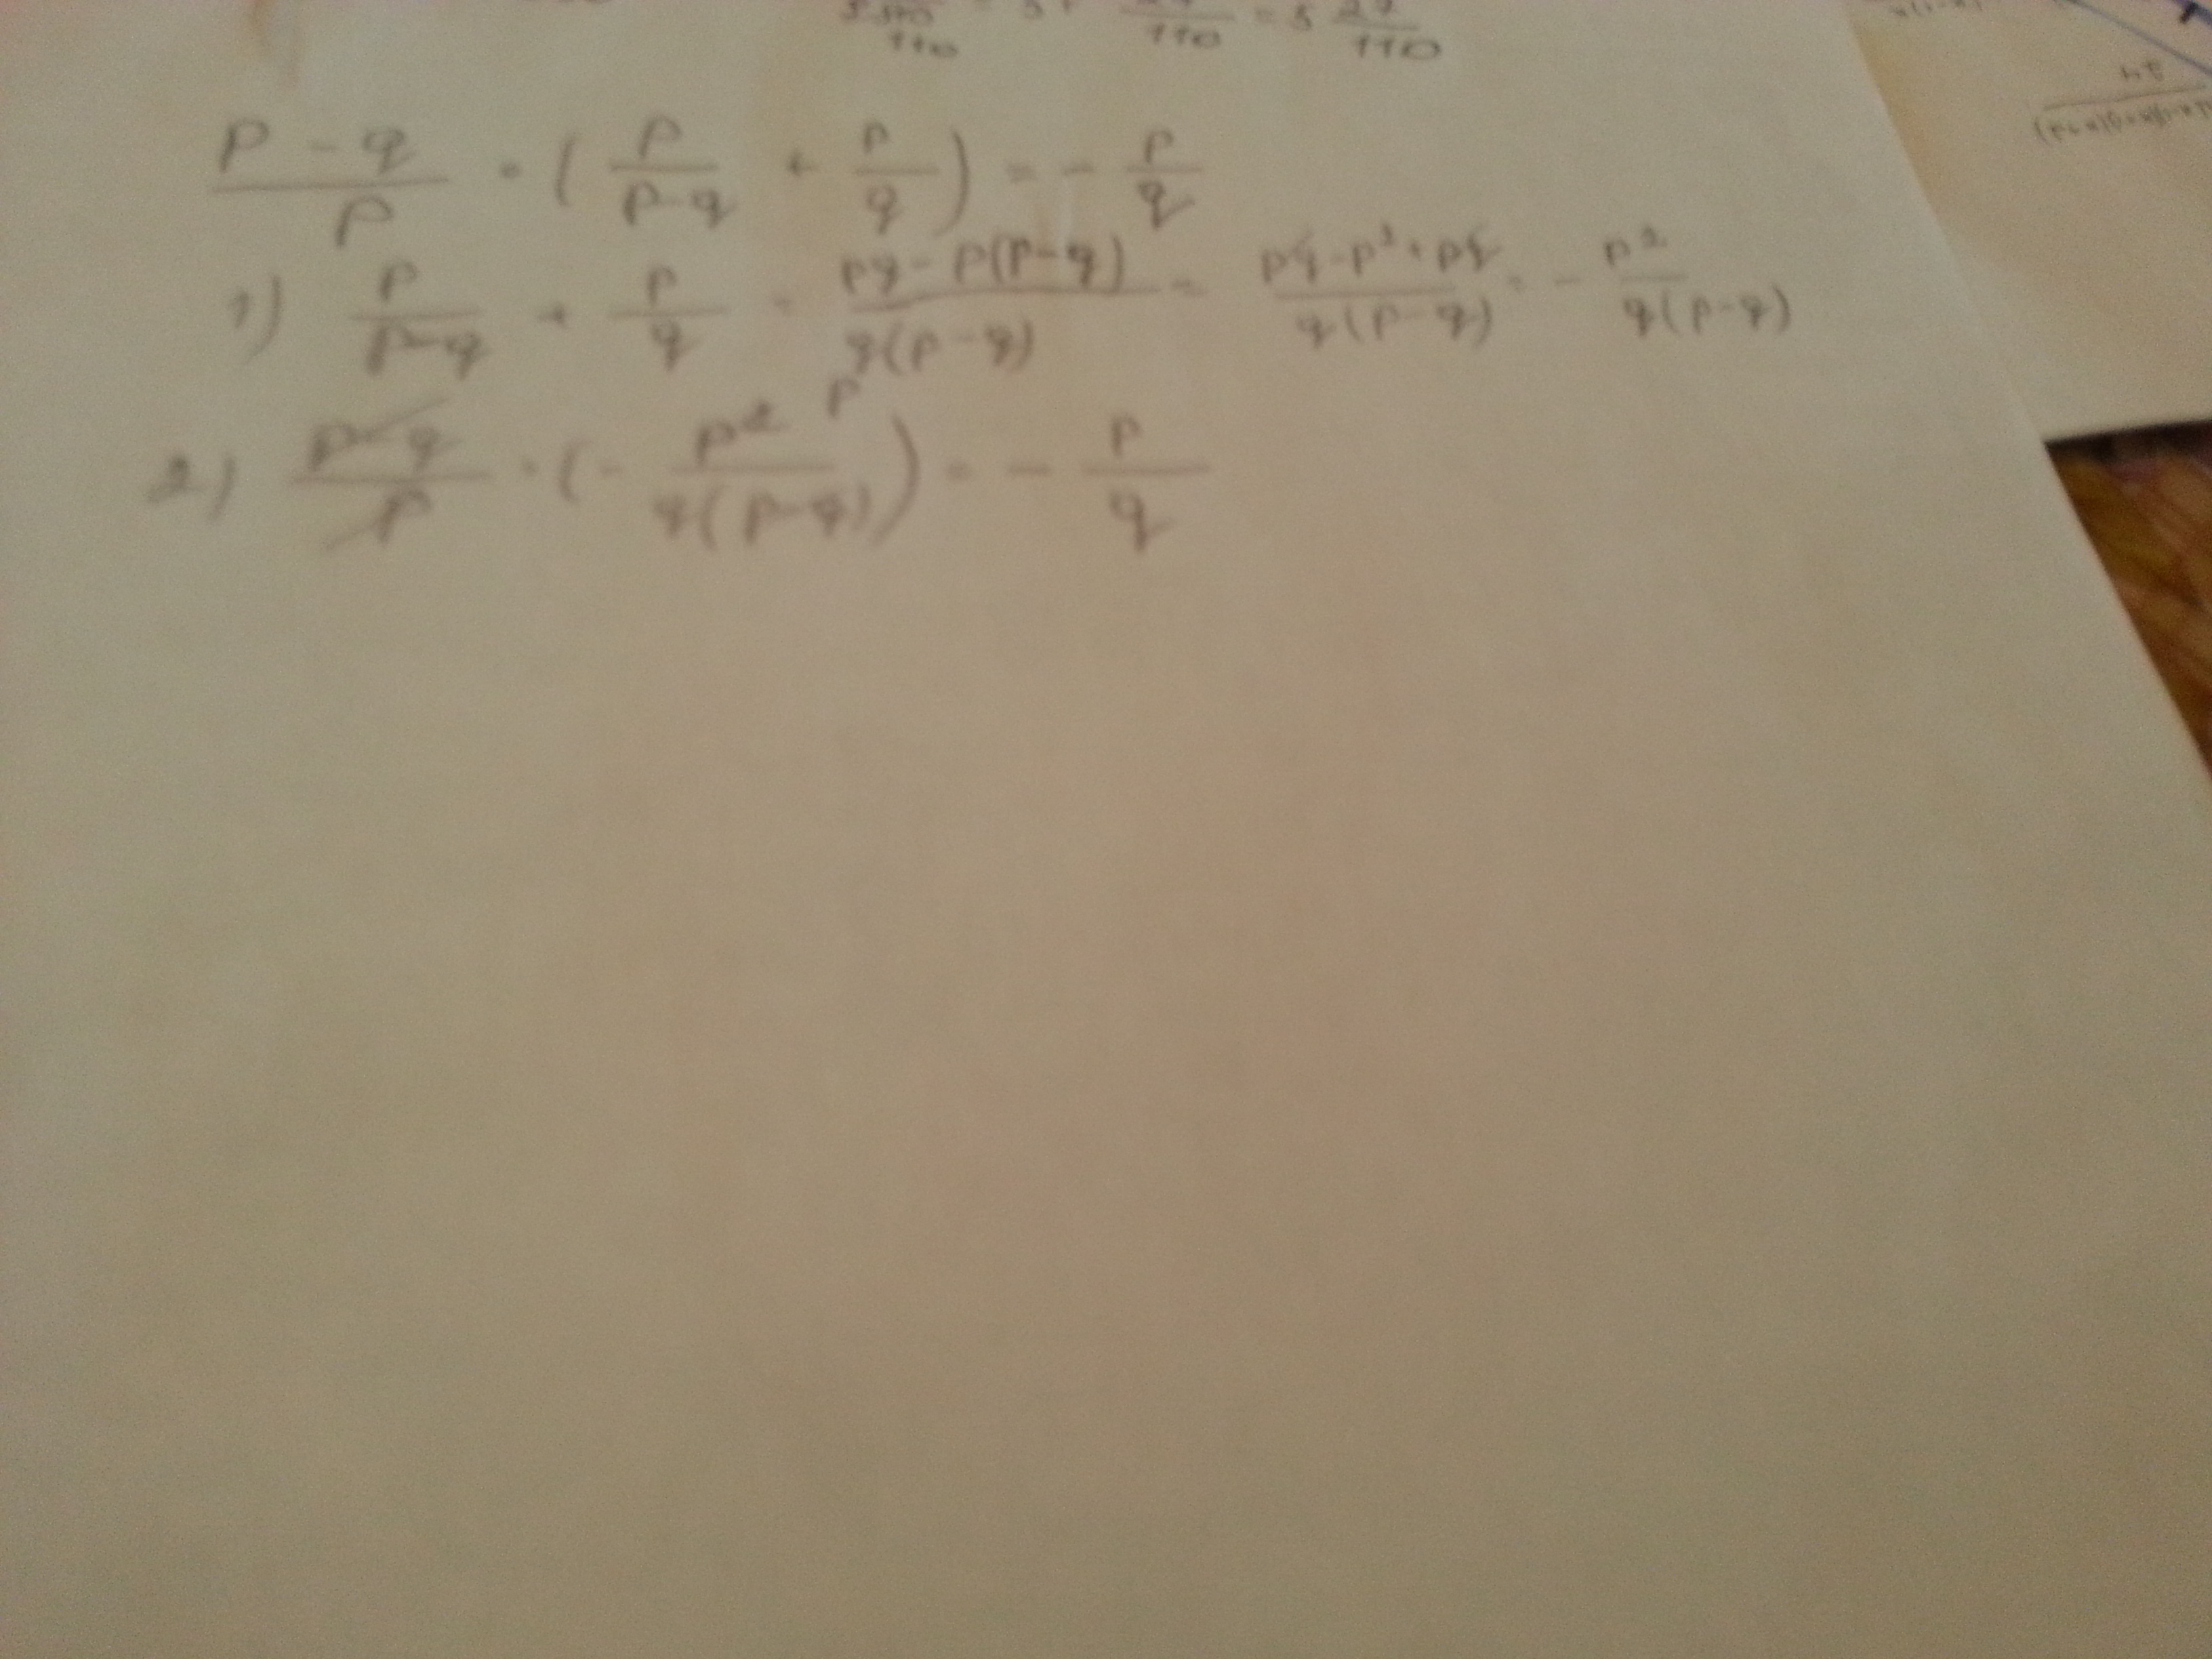 110 110 = 5 27/110
(p - q)/p · (p/(p-q) + p/q) = - p/q
1) p/(p-q) + p/q = (pq - p(p-q))/(q(p-q)) = (pq - p² + pq)/(q(p-q)) = - p²/(q(p-q))
2) (p-q)/p · (- p² p/(q(p-q))) = - p/q